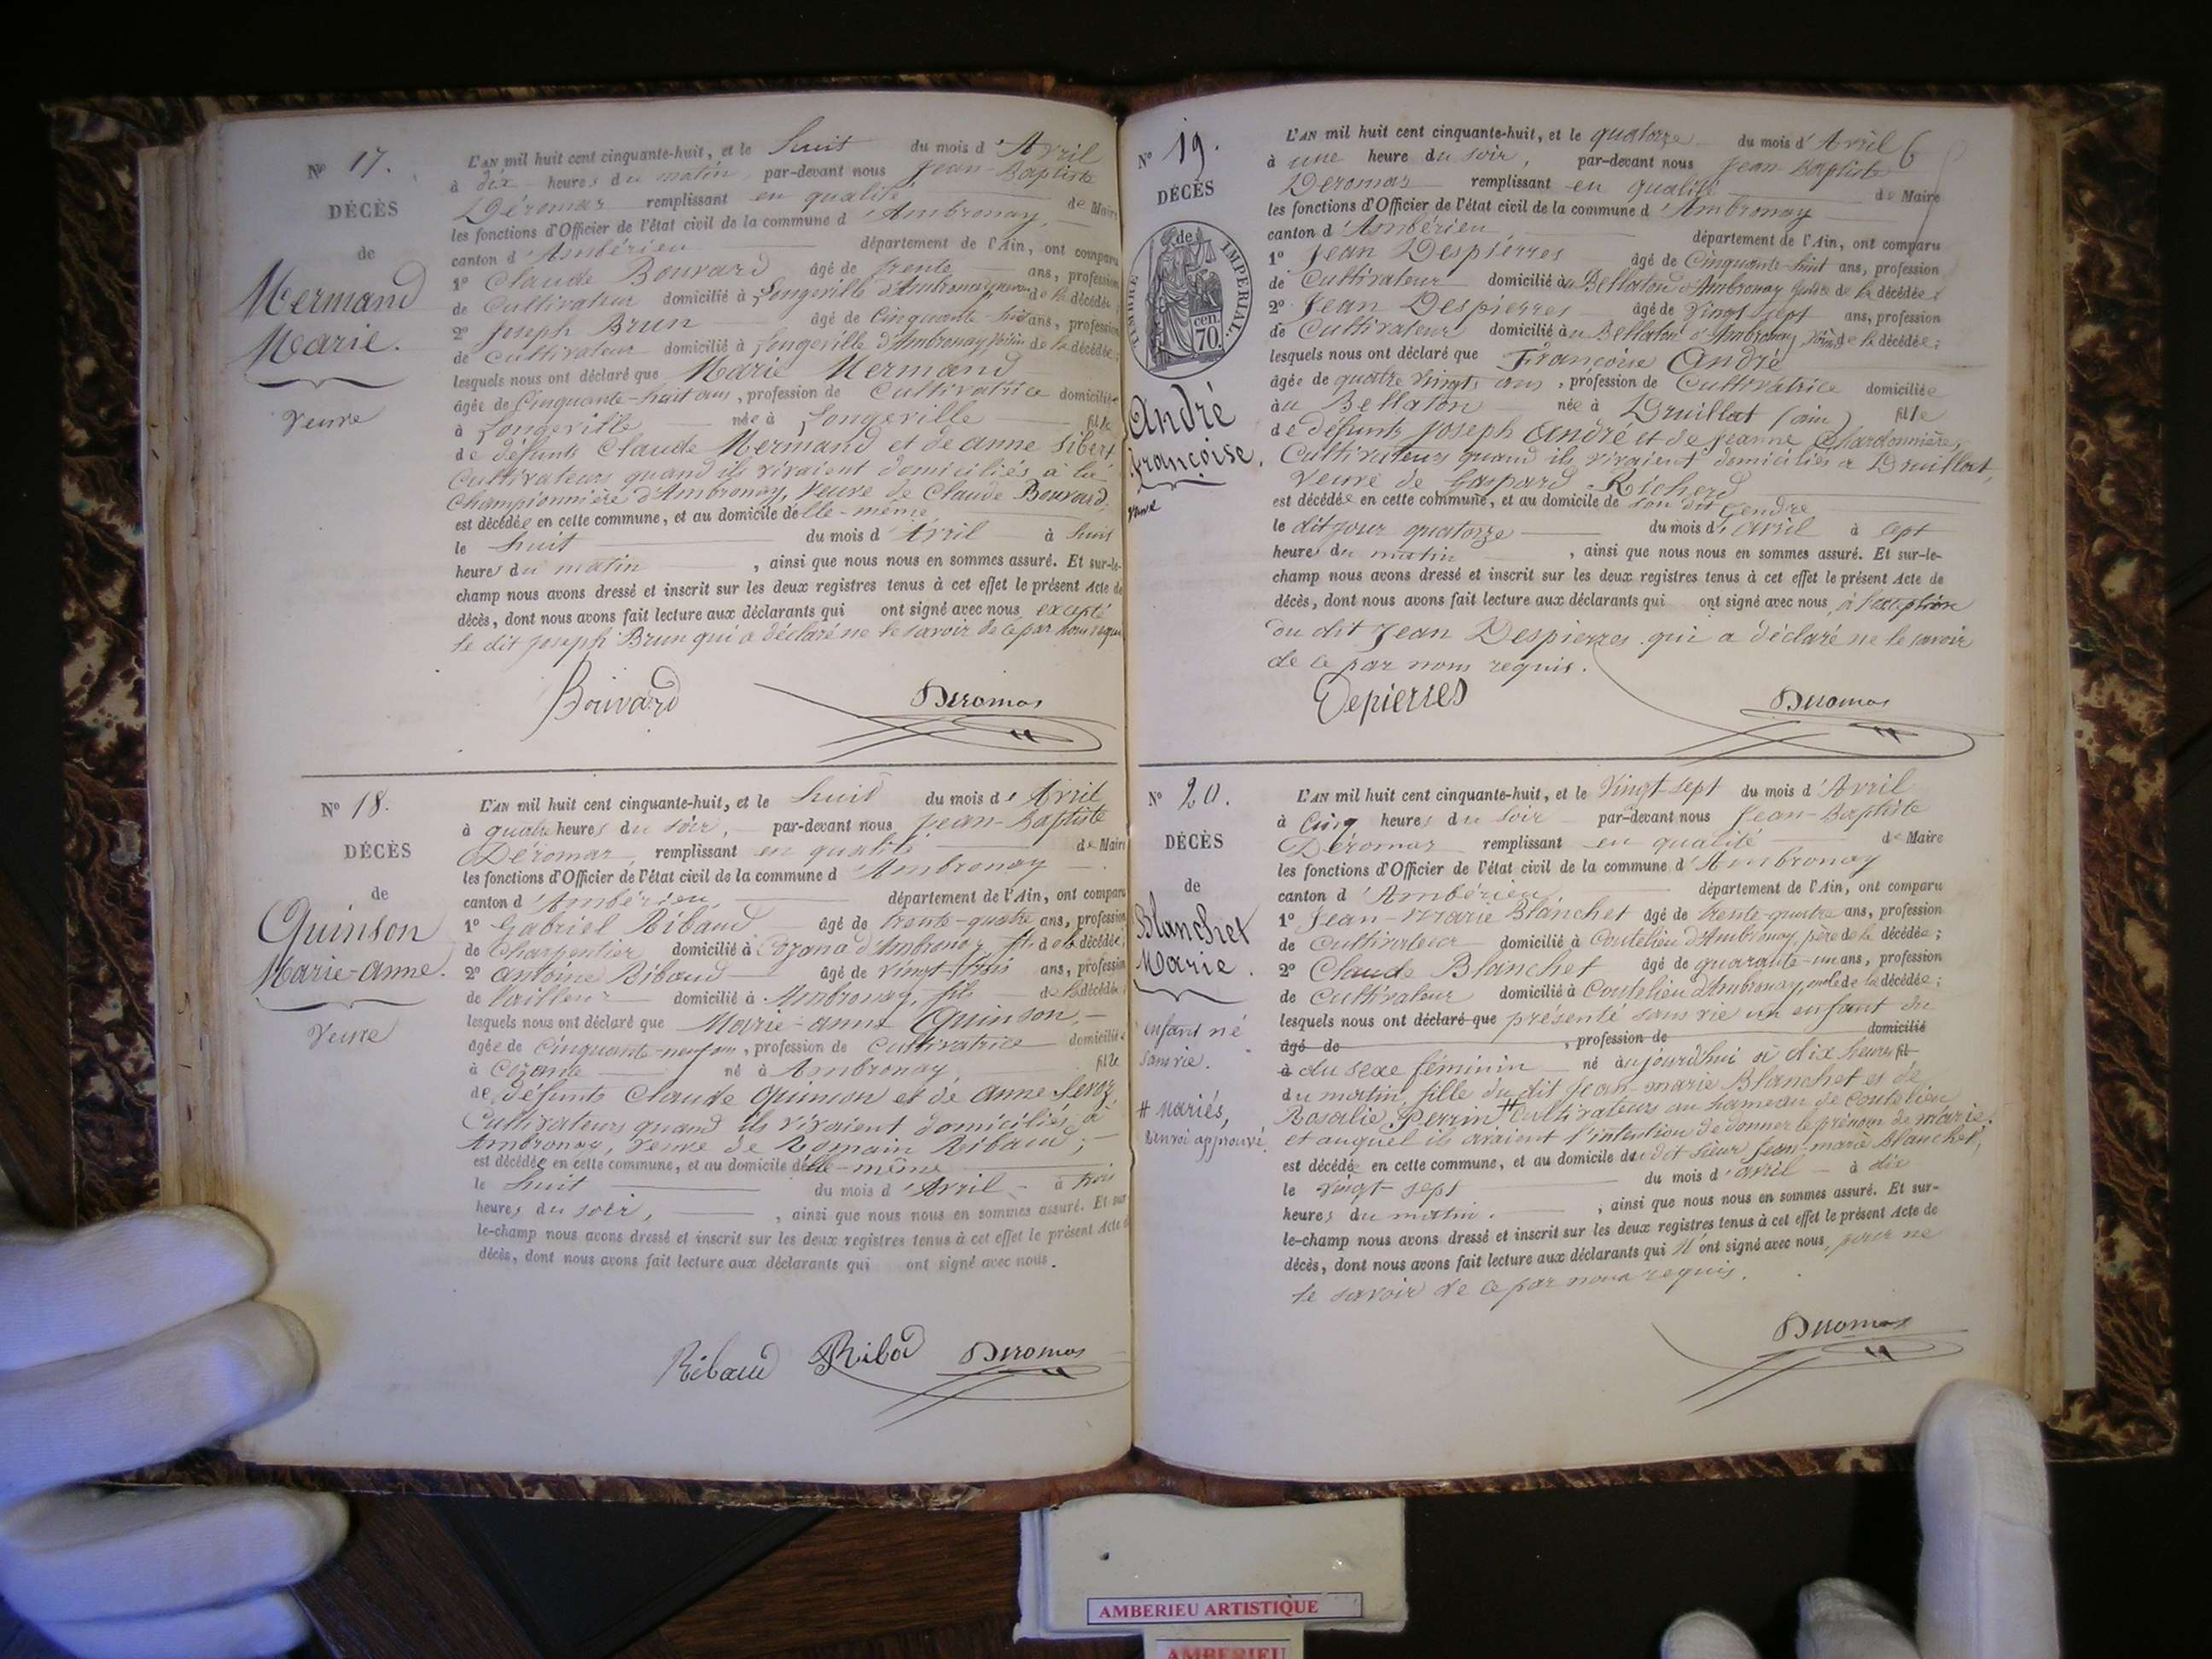 N° 17.
DÉCÈS
de
Mermand
Marie.
Veuve
L'AN mil huit cent cinquante-huit, et le huit du mois d'Avril
à dix heures du matin, par-devant nous Jean-Baptiste
Déromas remplissant en qualité de Maire
les fonctions d'Officier de l'état civil de la commune d'Ambronay,
canton d'Ambérieu département de l'Ain, ont comparu
1° Claude Bouvard âgé de trente ans, profession
de Cultivateur domicilié à Longeville d'Ambronay de la décédée
2° Joseph Brun âgé de Cinquante-huit ans, profession
de Cultivateur domicilié à Longeville d'Ambronay voisin de la décédée;
lesquels nous ont déclaré que Marie Mermand
âgée de Cinquante-huit ans, profession de Cultivatrice domiciliée
à Longeville née à Longeville fille
de défunts Claude Mermand et de anne Sibert
Cultivateurs quand ils vivaient domiciliés à la
Championnière d'Ambronay, Veuve de Claude Bouvard,
est décédée en cette commune, et au domicile d'elle-même
le huit du mois d'Avril à huit
heures du matin, ainsi que nous nous en sommes assuré. Et sur-le-
champ nous avons dressé et inscrit sur les deux registres tenus à cet effet le présent Acte de
décès, dont nous avons fait lecture aux déclarants qui ont signé avec nous excepté
le dit Joseph Brun qui a déclaré ne le savoir de ce par nous requis
Bouvard Deromas
N° 18.
DÉCÈS
de
Quinson
Marie-anne.
Veuve
L'AN mil huit cent cinquante-huit, et le huit du mois d'Avril
à quatre heures du soir, par-devant nous Jean-Baptiste
Déromas, remplissant en qualité de Maire
les fonctions d'Officier de l'état civil de la commune d'Ambronay
canton d'Ambérieu, département de l'Ain, ont comparu
1° Gabriel Ribaud âgé de trente-quatre ans, profession
de Charpentier domicilié à Cozance d'Ambronay fils de la décédée;
2° antoine Ribaud âgé de vingt-trois ans, profession
de tailleur domicilié à Ambronay, fils de la décédée
lesquels nous ont déclaré que Marie-anne Quinson,
âgée de Cinquante-neuf ans, profession de Cultivatrice domiciliée
à né à Ambronay, fille
de défunts Claude Quinson et de Anne
Cultivateurs quand ils vivaient domiciliés à
Ambronay, veuve de Romain Ribaud;
est décédée en cette commune, et au domicile d'elle-même
le huit du mois d'Avril à trois
heures du soir, ainsi que nous nous en sommes assuré. Et sur
le-champ nous avons dressé et inscrit sur les deux registres tenus à cet effet le présent Acte de
décès, dont nous avons fait lecture aux déclarants qui ont signé avec nous.
Ribaud Ribod Deromas
N° 19.
DÉCÈS
de
TIMBRE IMPÉRIAL.
70. cen.
André
françoise.
Veuve
6
L'AN mil huit cent cinquante-huit, et le quatorze du mois d'Avril
à une heure du soir, par-devant nous Jean-Baptiste
Deromas remplissant en qualité de Maire
les fonctions d'Officier de l'état civil de la commune d'Ambronay
canton d'Ambérieu, département de l'Ain, ont comparu
1° Jean Despierres âgé de Cinquante-huit ans, profession
de Cultivateur domicilié au Bellaton d'Ambronay gendre de la décédée;
2° Jean Despierres âgé de vingt-sept ans, profession
de Cultivateur domicilié au Bellaton d'Ambronay, voisin de la décédée;
lesquels nous ont déclaré que Françoise André
âgée de quatre vingts ans, profession de Cultivatrice domiciliée
au Bellaton née à Druillat (ain) fille
de défunts Joseph André et de jeanne Chardonnière,
Cultivateurs quand ils vivaient domiciliés à Druillat,
Veuve de Gaspard Richerd
est décédée en cette commune, et au domicile de son dit Gendre
le dit jour quatorze du mois d'avril à sept
heures du matin, ainsi que nous nous en sommes assuré. Et sur-le-
champ nous avons dressé et inscrit sur les deux registres tenus à cet effet le présent Acte de
décès, dont nous avons fait lecture aux déclarants qui ont signé avec nous, à l'exception
du dit Jean Despierres qui a déclaré ne le savoir
de ce par nous requis.
Depierres Deromas
N° 20.
DÉCÈS
de
Blanchet
Marie.
enfant né
sans vie.
# mariés,
Renvoi approuvé
L'AN mil huit cent cinquante-huit, et le Vingt-sept du mois d'Avril
à Cinq heures du soir par-devant nous Jean-Baptiste
Déromas remplissant en qualité de Maire
les fonctions d'Officier de l'état civil de la commune d'Ambronay
canton d'Ambérieu département de l'Ain, ont comparu
1° Jean-Marie Blanchet âgé de trente-quatre ans, profession
de Cultivateur domicilié à Coutelieu d'Ambronay, père de la décédée;
2° Claude Blanchet âgé de quarante-un ans, profession
de Cultivateur domicilié à Coutelieu d'Ambronay, oncle de la décédée;
lesquels nous ont déclaré que présenté sans vie un enfant du
âgé de , profession de domicilié
à du sexe féminin né aujourd'hui à dix heures fil
du matin, fille du dit Jean-Marie Blanchet et de
Rosalie Perrin # Cultivateurs au hameau de Coutelieu
et auquel ils avaient l'intention de donner le prénom de Marie.
est décédée en cette commune, et au domicile du dit sieur Jean-marie Blanchet,
le vingt-sept du mois d'avril à dix
heures du matin, ainsi que nous nous en sommes assuré. Et sur-
le-champ nous avons dressé et inscrit sur les deux registres tenus à cet effet le présent Acte de
décès, dont nous avons fait lecture aux déclarants qui n'ont signé avec nous, pour ne
le savoir de ce par nous requis.
Deromas
AMBERIEU ARTISTIQUE
AMBERIEU